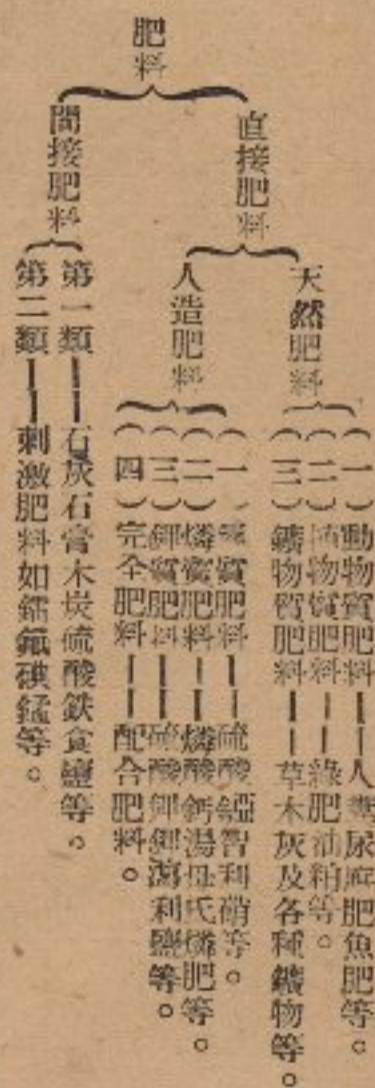 肥料
直接肥料
天然肥料
(一)動物質肥料——人糞尿廐肥魚肥等。
(二)植物質肥料——綠肥油粕等。
(三)鑛物質肥料——草木灰及各種鑛物等。
人造肥料
(一)質肥料——硫酸智利硝等。
(二)燐質肥料——燐酸鈣湯母氏燐肥等。
(三)鉀質肥料——硫酸鉀鉀瀉利鹽等。
(四)完全肥料——配合肥料。
間接肥料
第一類——石灰石膏木炭硫酸鉄食鹽等。
第二類——刺激肥料如鐳氟碘錳等。